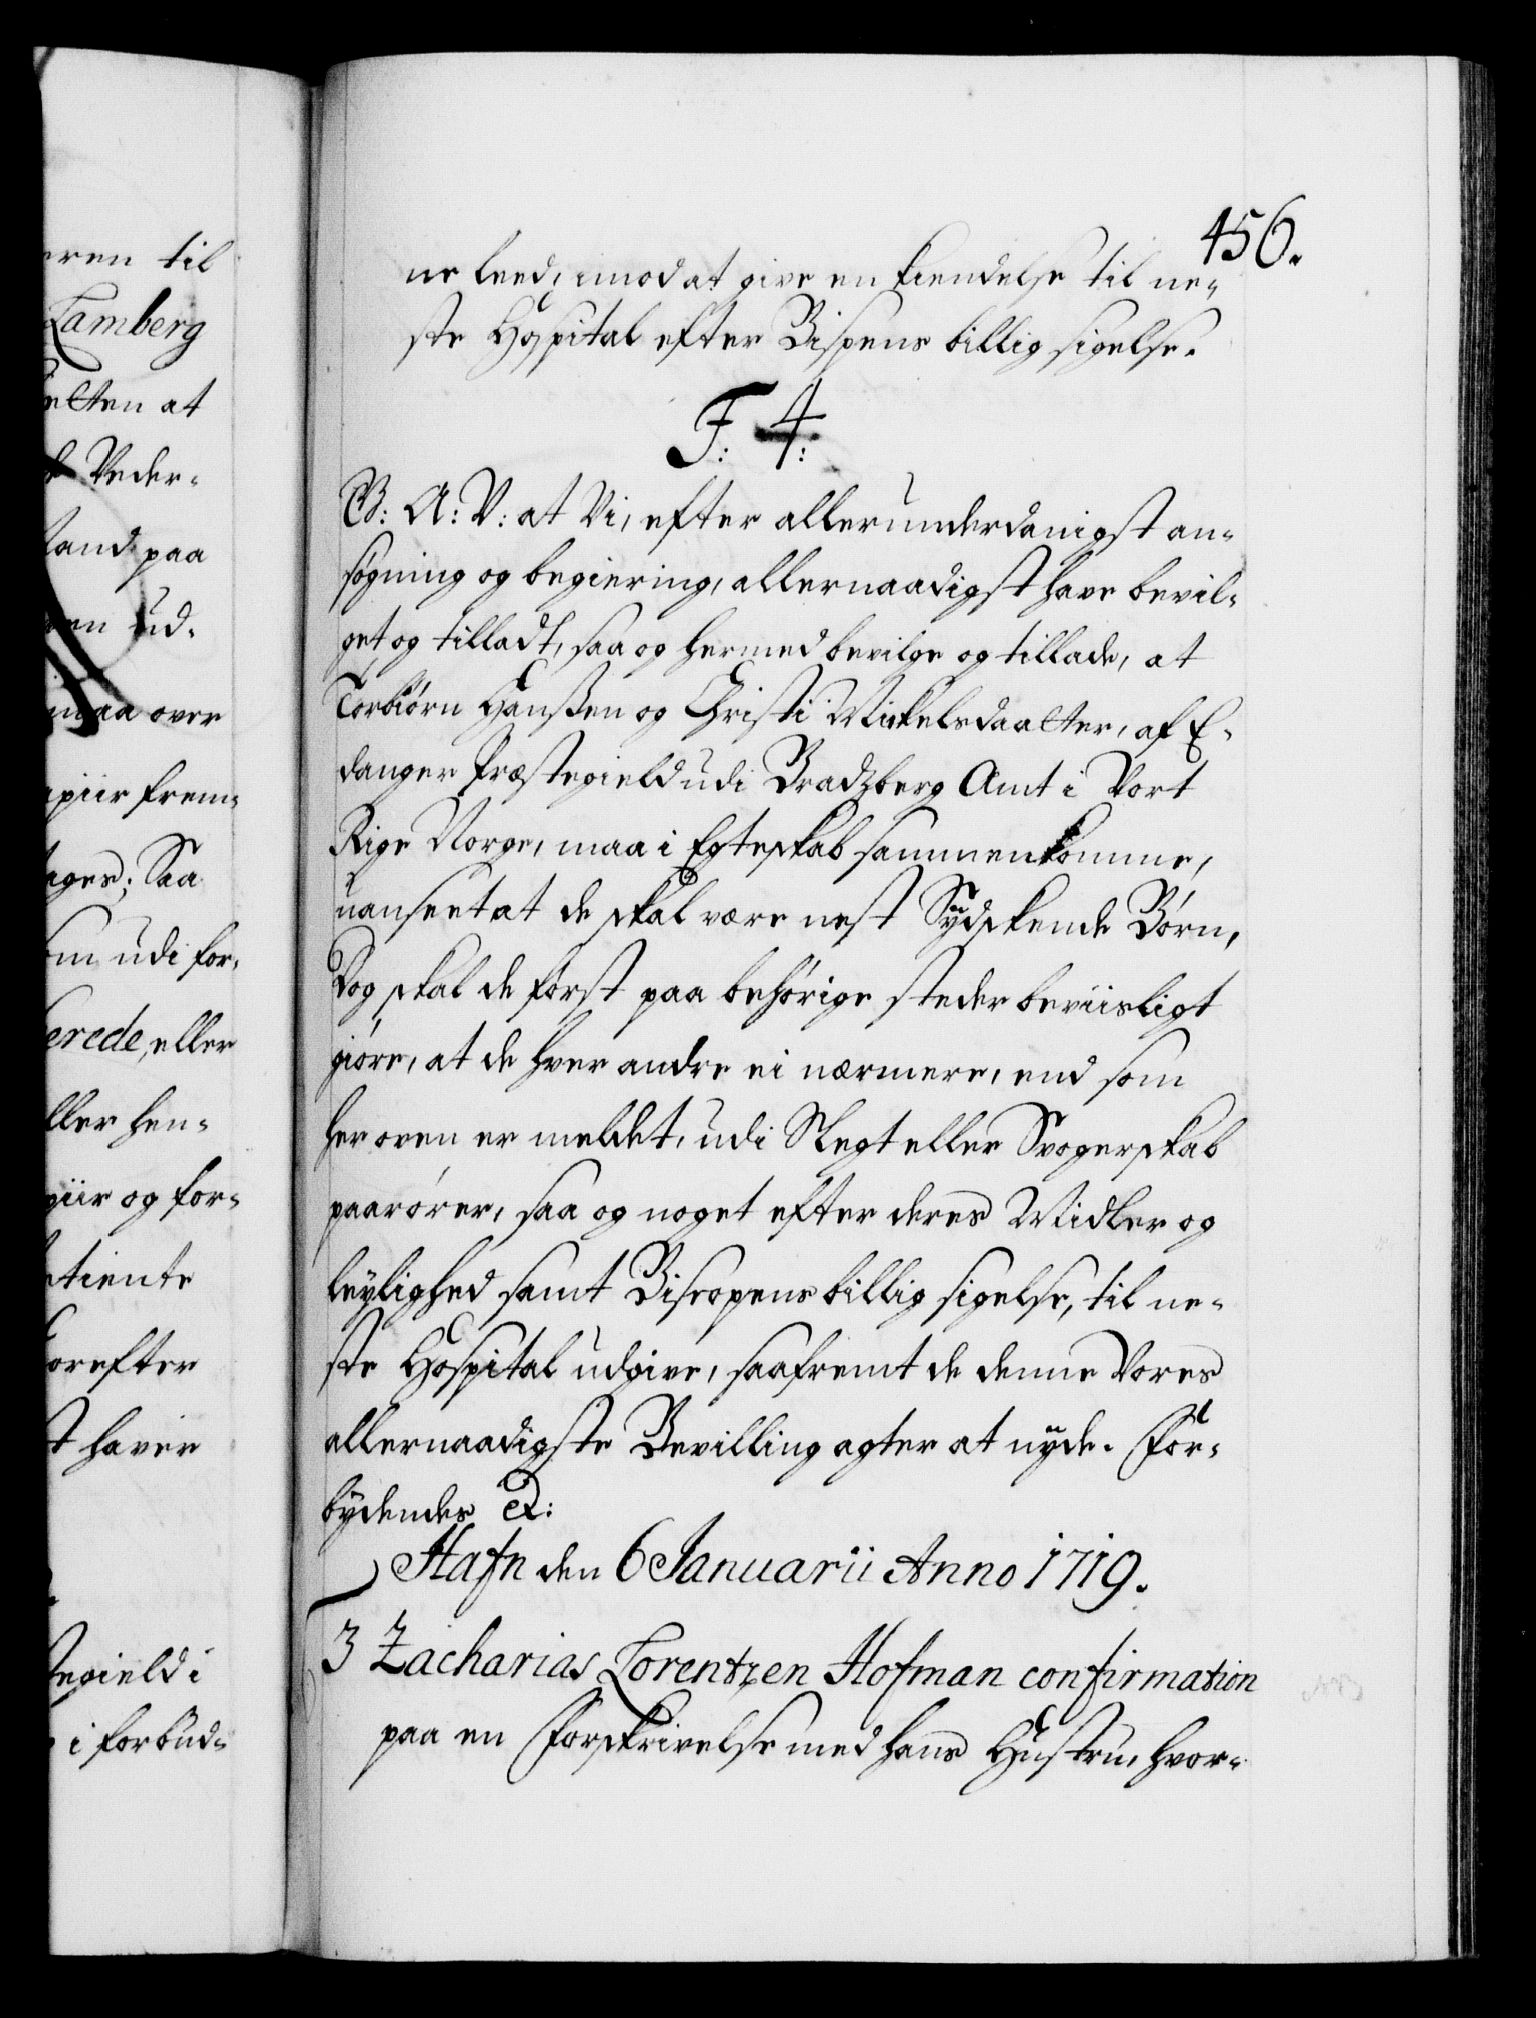 eren til
Lamberg
elten at
Veder-
land paa
en ud-
maa over
apiir frem-
tages; Saa
om udi for-
erede, eller
ller hen-
piir og for-
etiente
orefter
t haver
tegield i
i forbud-
456.
ne leed, imod at give en kiendelse til ne-
ste Hospital efter Bispens billig sigelse.
F: 4:
G: A: V: at Vi, efter allerunderdanigst an-
søgning og begiering, allernaadigst have bevil-
get og tilladt, saa og hermed bevilge og tillade, at
Torbiørn Hanßen og Christi Mickelsdaatter, af E-
danger Præstegield udi Bradzberg Amt i Vort
Rige Norge, maa i Egteskab sammenkomme,
uanseet at de skal være nest Sydskende Børn,
Dog skal de først paa behørige steder beviisligt
giøre, at de hver andre ei nærmere, end som
her oven er meldet, udi Slegt eller Svogerskab
paarører, saa og noget efter deres Midler og
leylighed samt Biscopens billig sigelse, til ne-
ste Hospital udgive, saafremt de denne Vores
allernaadigste Bevilling agter at nyde. For-
bydendes etc:
Hafn den 6 Januarii Anno 1719.
3 Zacharias Lorentzen Hofman confirmation
paa en Forskrivelse med hans Hustru, hvor-